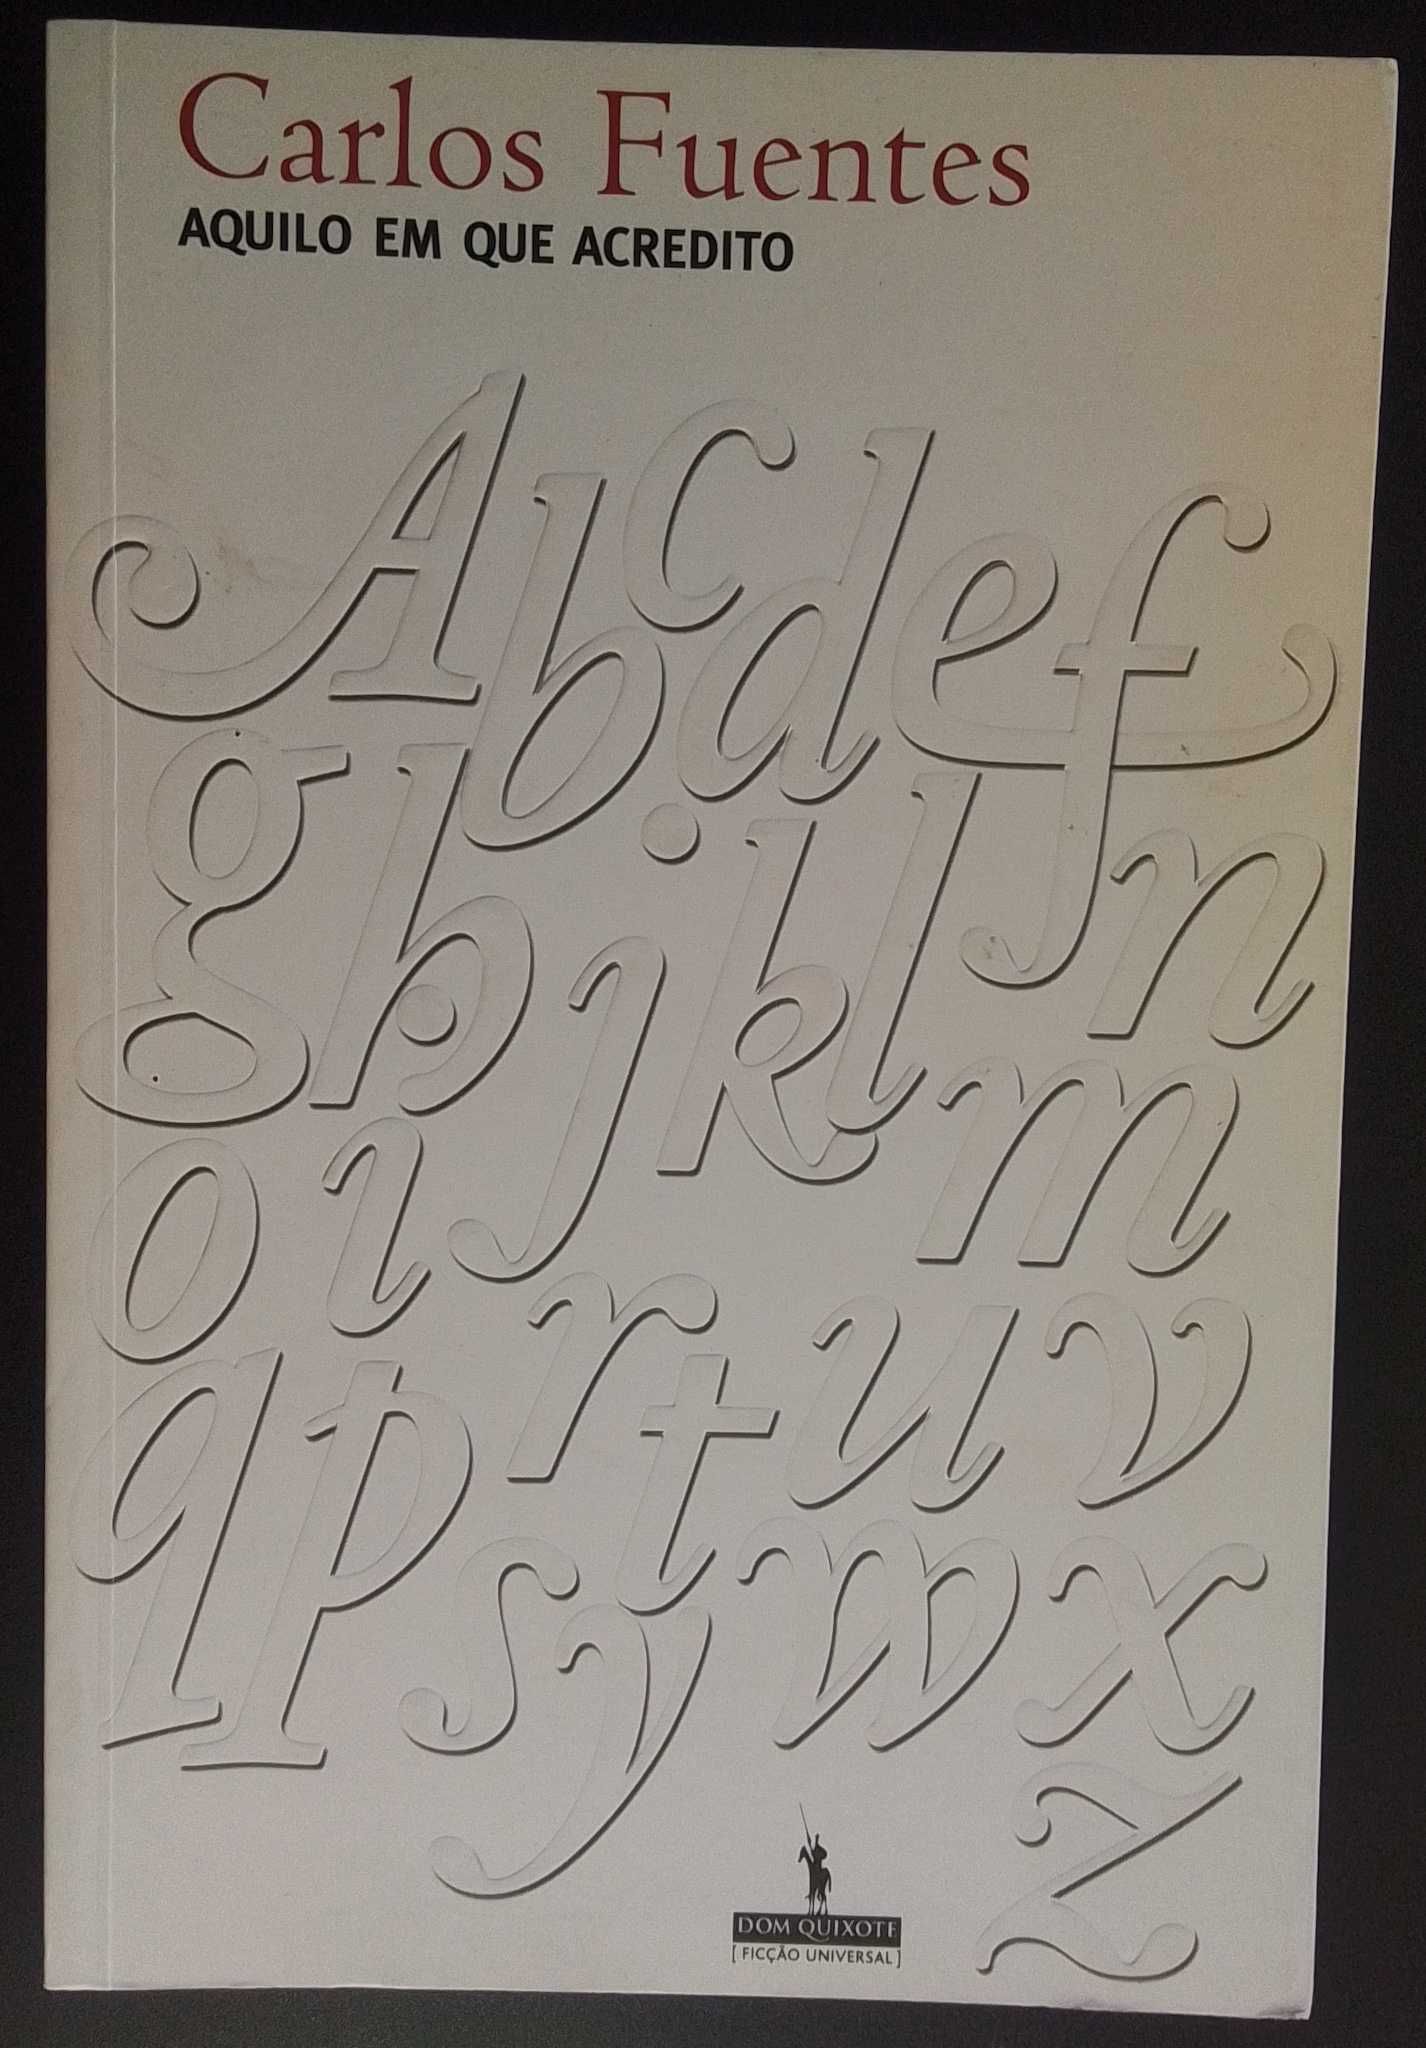 Carlos Fuentes
AQUILO EM QUE ACREDITO
A b c d e f
g h i j k l n
o i m
q p r t u v
s y w x
z
DOM QUIXOTE
[FICÇÃO UNIVERSAL]